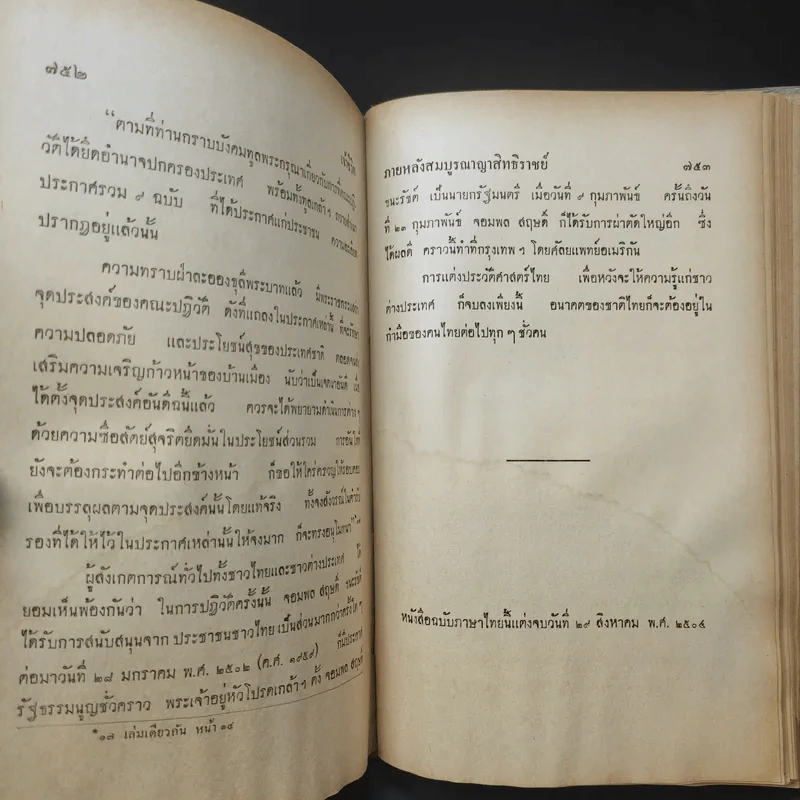 ๗๕๒
“ตามที่ท่านกราบบังคมทูลพระกรุณาเกี่ยวกับการที่คณะปฏิ
วัติได้ยึดอำนาจปกครองประเทศ พร้อมทั้งทูลเกล้าฯ
ประกาศรวม ๙ ฉบับ ที่ได้ประกาศแก่ประชาชน
ปรากฏอยู่แล้วนั้น
ความทราบฝ่าละอองธุลีพระบาทแล้ว มีพระราชกระแสว่า
จุดประสงค์ของคณะปฏิวัติ ดังที่แถลงในประกาศเหล่านี้ ที่จะรักษา
ความปลอดภัย และประโยชน์สุขของประเทศชาติ ตลอดจน
เสริมความเจริญก้าวหน้าของบ้านเมือง นับว่าเป็นเจตนาอันดี เมื่อ
ได้ตั้งจุดประสงค์อันดีฉนี้แล้ว ควรจะได้พยายามดำเนินการต่างๆ
ด้วยความซื่อสัตย์สุจริตยึดมั่นในประโยชน์ส่วนรวม การอันใดที่
ยังจะต้องกระทำต่อไปอีกข้างหน้า ก็ขอให้ใคร่ครวญให้รอบคอบ
เพื่อบรรลุผลตามจุดประสงค์นั้นโดยแท้จริง ทั้งจงสังวรณ์ในคำรับ
รองที่ได้ให้ไว้ในประกาศเหล่านั้นให้จงมาก ก็จะทรงอนุโมทนา”
ผู้สังเกตการณ์ทั่วไปทั้งชาวไทยและชาวต่างประเทศ ได้
ยอมเห็นพ้องกันว่า ในการปฏิวัติครั้งนั้น จอมพล สฤษดิ์ ธนะรัชต์
ได้รับการสนับสนุนจาก ประชาชนชาวไทย เป็นส่วนมากกว่าครั้งใด ๆ
ต่อมาวันที่ ๒๘ มกราคม พ.ศ. ๒๕๐๒ (ค.ศ. ๑๙๕๙) ก็มีประกาศ
รัฐธรรมนูญชั่วคราว พระเจ้าอยู่หัวโปรดเกล้าฯ ตั้ง จอมพล สฤษดิ์
*๑๓ เล่มเดียวกัน หน้า ๑๔
ภายหลังสมบูรณาญาสิทธิราชย์ ๗๕๓
ธนะรัชต์ เป็นนายกรัฐมนตรี เมื่อวันที่ ๙ กุมภาพันธ์ ครั้นถึงวัน
ที่ ๒๓ กุมภาพันธ์ จอมพล สฤษดิ์ ก็ได้รับการผ่าตัดใหญ่อีก ซึ่ง
ได้ผลดี คราวนี้ทำที่กรุงเทพ ฯ โดยศัลยแพทย์อเมริกัน
การแต่งประวัติศาสตร์ไทย เพื่อหวังจะให้ความรู้แก่ชาว
ต่างประเทศ ก็จบลงเพียงนี้ อนาคตของชาติไทยก็จะต้องอยู่ใน
กำมือของคนไทยต่อไปทุก ๆ ชั่วคน
หนังสือฉบับภาษาไทยนี้แต่งจบวันที่ ๒๙ สิงหาคม พ.ศ. ๒๕๐๔